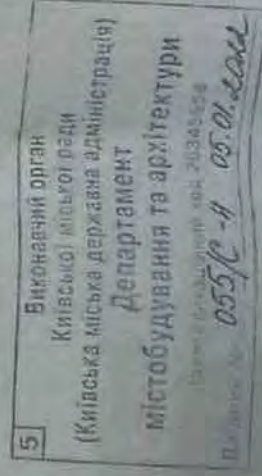 5
Виконавчий орган
Київської міської ради
(Київська міська державна адміністрація)
Департамент
містобудування та архітектури
код 26345558
055/С-Н 05.01.2022